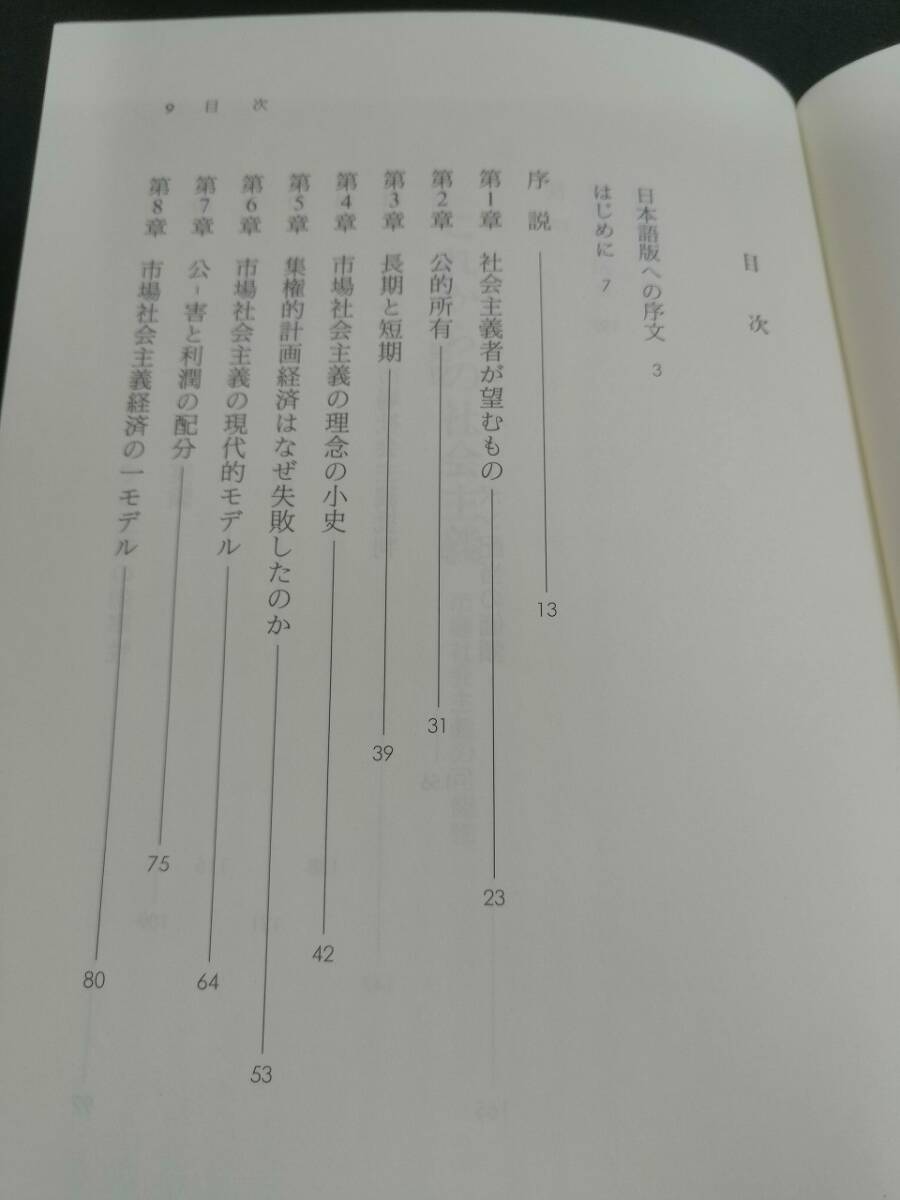 9 目次
目次
日本語版への序文 3
はじめに 7
序説 13
第1章 社会主義者が望むもの 23
第2章 公的所有 31
第3章 長期と短期 39
第4章 市場社会主義の理念の小史 42
第5章 集権的計画経済はなぜ失敗したのか 53
第6章 市場社会主義の現代的モデル 64
第7章 公-害と利潤の配分 75
第8章 市場社会主義経済の一モデル 80